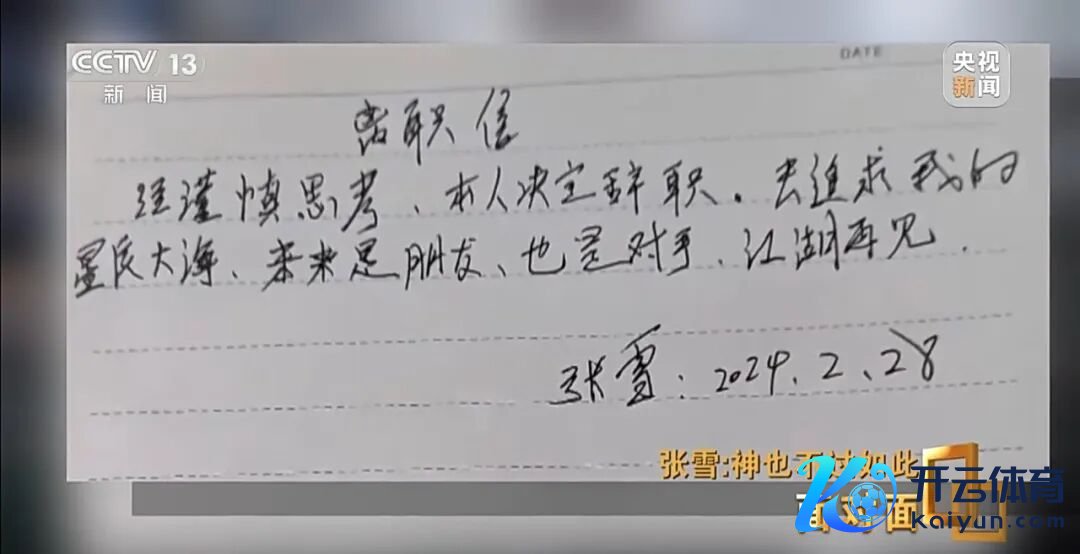 CCTV 13
新闻
央视
新闻
DATE
离职信
经谨慎思考、本人决定辞职。去追求我的
星辰大海、未来是朋友、也是对手、江湖再见.
张雪: 2024.2.28
张雪:神也不过如此
面对面
开云体育
Kaiyun.com